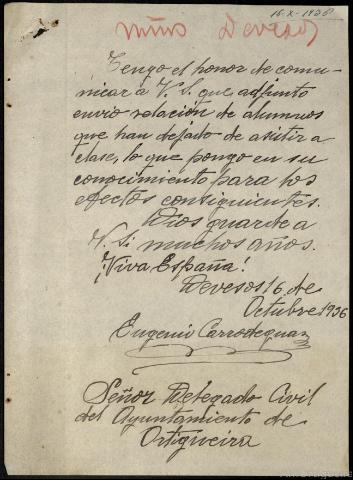 16-X-1936
niños Devesos
Tengo el honor de comu-
nicar á V. S. que adjunto
envio relación de alumnos
que han dejado de asistir a
clase, lo que pongo en su
conocimiento para los
efectos consiguientes.
Dios guarde a
V. S. muchos años.
¡Viva España!
Devesos 16 de
Octubre 1936
Eugenio Carrodeguas
Señor Delegado Civil
del Ayuntamiento de
Ortigueira